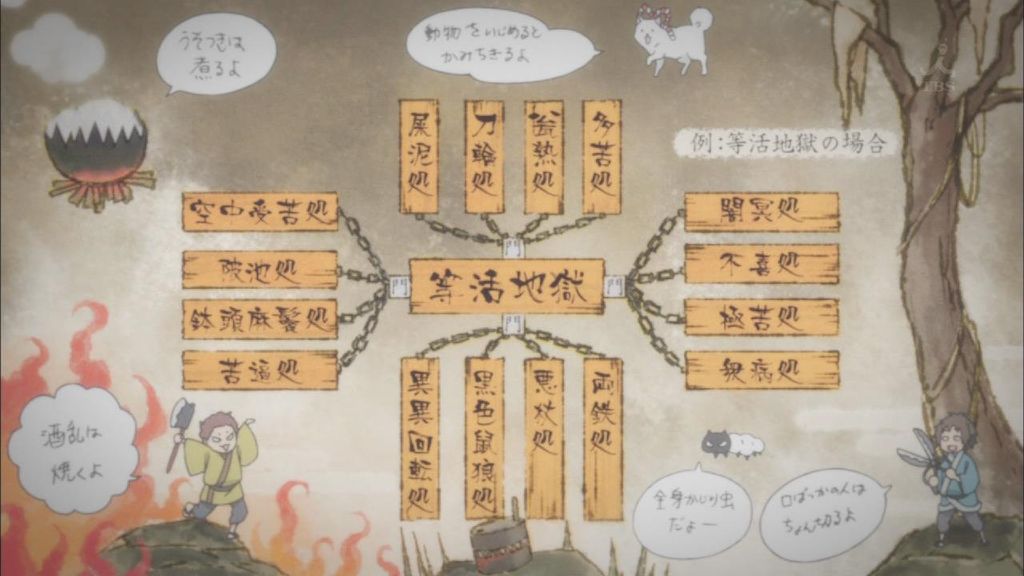 うそつきは
煮るよ
動物をいじめると
かみちぎるよ
TBS
例:等活地獄の場合
屎泥処
刀輪処
瓮熱処
多苦処
空中受苦処
陂池処
鉢頭麻鬢処
苦逼処
門
門
等活地獄
門
門
闇冥処
不喜処
極苦処
無病処
異異回転処
黒色鼠狼処
悪杖処
両鉄処
酒乱は
焼くよ
全身かじり虫
だよー
口ばっかの人は
ちょん切るよ